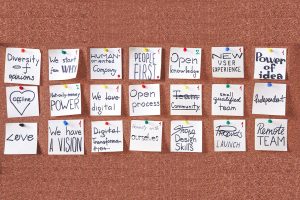 Diversity
of
opinions
We start
from WHY
HUMAN-
oriented
Company
PEOPLE
FIRST
Open
knowledge
NEW
USER
EXPERIENCE
Power of
idea
offline
POWER
We love
digital
Open
process
Team
Community
small
qualified
team
Independent
LOVE
We have
A VISION
Digital
Transforma-
tion
ourselves
Design
Skills
LAUNCH
Remote
TEAM